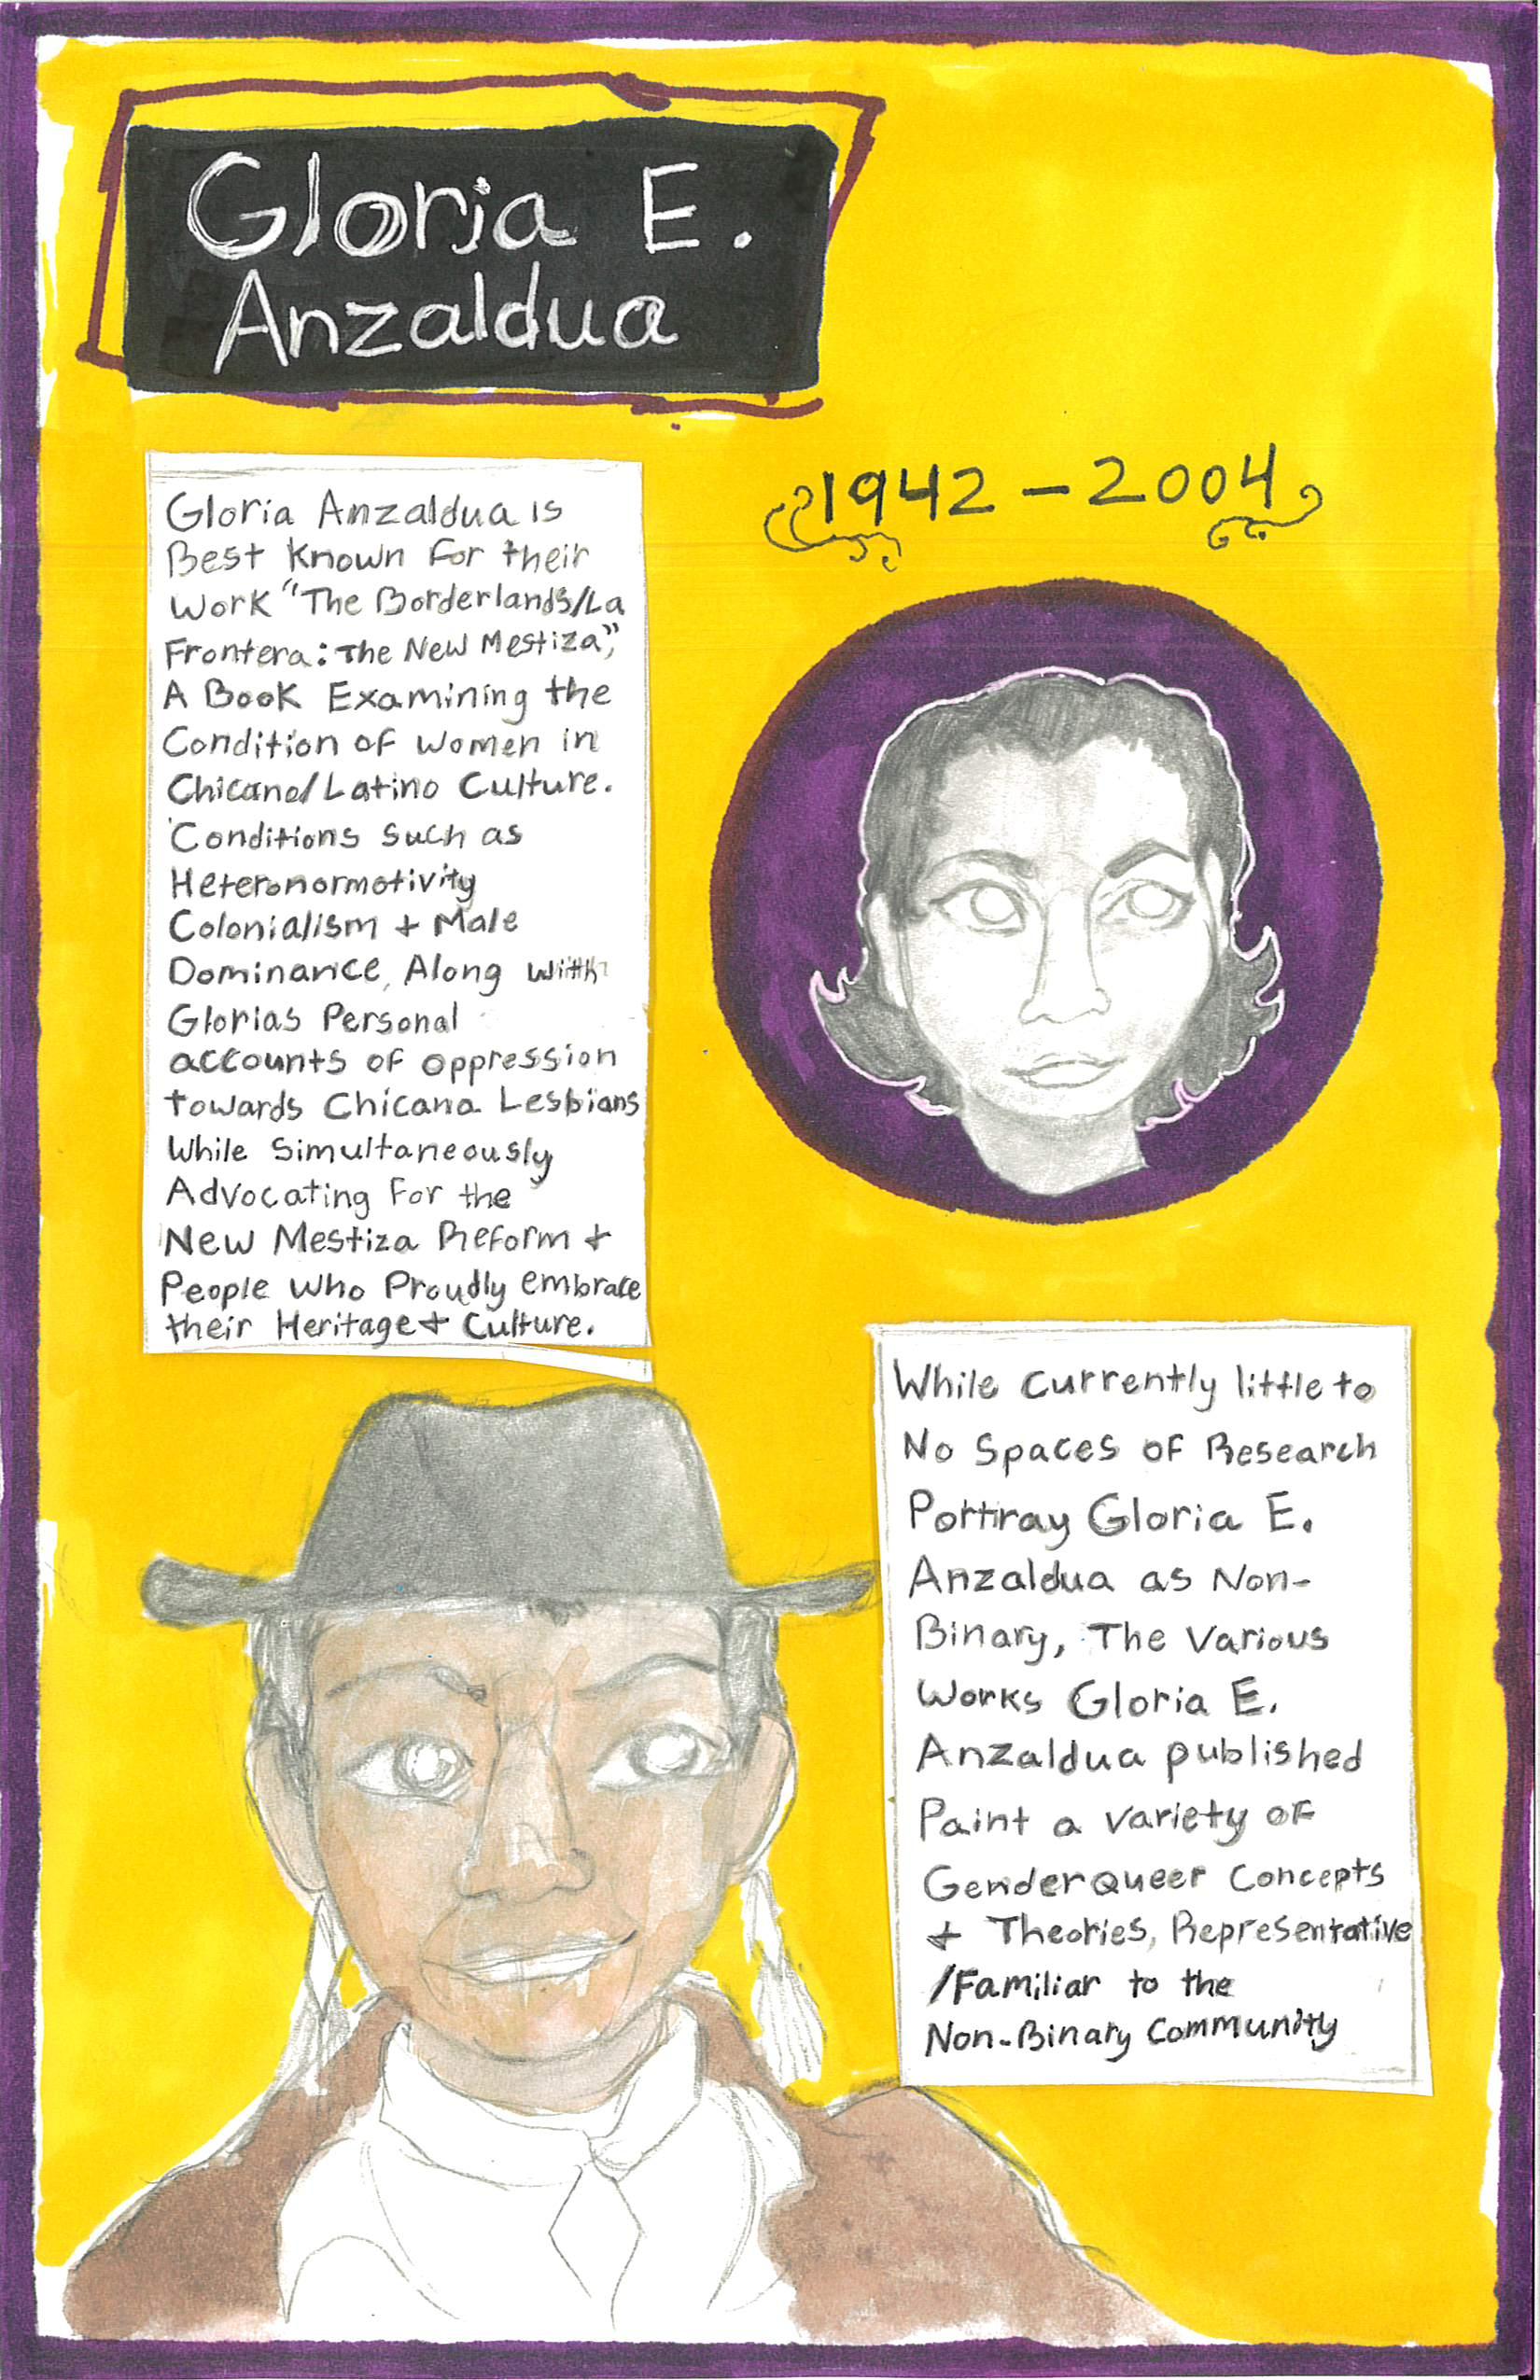 Gloria E.
Anzaldua
1942 - 2004
Gloria Anzaldua is
Best Known For their
Work "The Borderlands/La
Frontera: The New Mestiza",
A Book Examining the
Condition of Women in
Chicano/Latino Culture.
Conditions Such as
Heteronormotivity
Colonialism + Male
Dominance, Along with
Glorias Personal
accounts of oppression
towards Chicana Lesbians
While Simultaneously
Advocating For the
New Mestiza Reform +
People Who Proudly embrace
their Heritage + Culture.
While Currently little to
No Spaces of Research
Portray Gloria E.
Anzaldua as Non-
Binary, The Various
Works Gloria E.
Anzaldua published
Paint a variety of
Genderqueer Concepts
+ Theories, Representative
/Familiar to the
Non-Binary Community